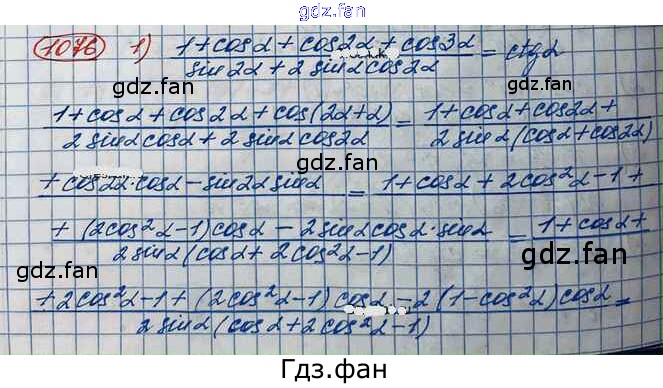 gdz.fan
1076 1) (1+cosα+cos2α+cos3α)/(sin2α+2sinαcos2α) = ctgα
gdz.fan gdz.fan
(1+cosα+cos2α+cos(2α+α))/(2sinαcosα+2sinαcos2α) = (1+cosα+cos2α+)/(2sinα(cosα+cos2α)
gdz.fan gdz.fan
+cos2α·cosα-sin2αsinα = 1+cosα+2cos²α-1+
gdz.fan
(+(2cos²α-1)cosα-2sinαcosα·sinα)/(2sinα(cosα+2cos²α-1)) = 1+cosα+
gdz.fan gdz.fan
(+2cos²α-1+(2cos²α-1)cosα-2(1-cos²α)cosα)/(2sinα(cosα+2cos²α-1)) =
gdz.fan gdz.fan
Гдз.фан